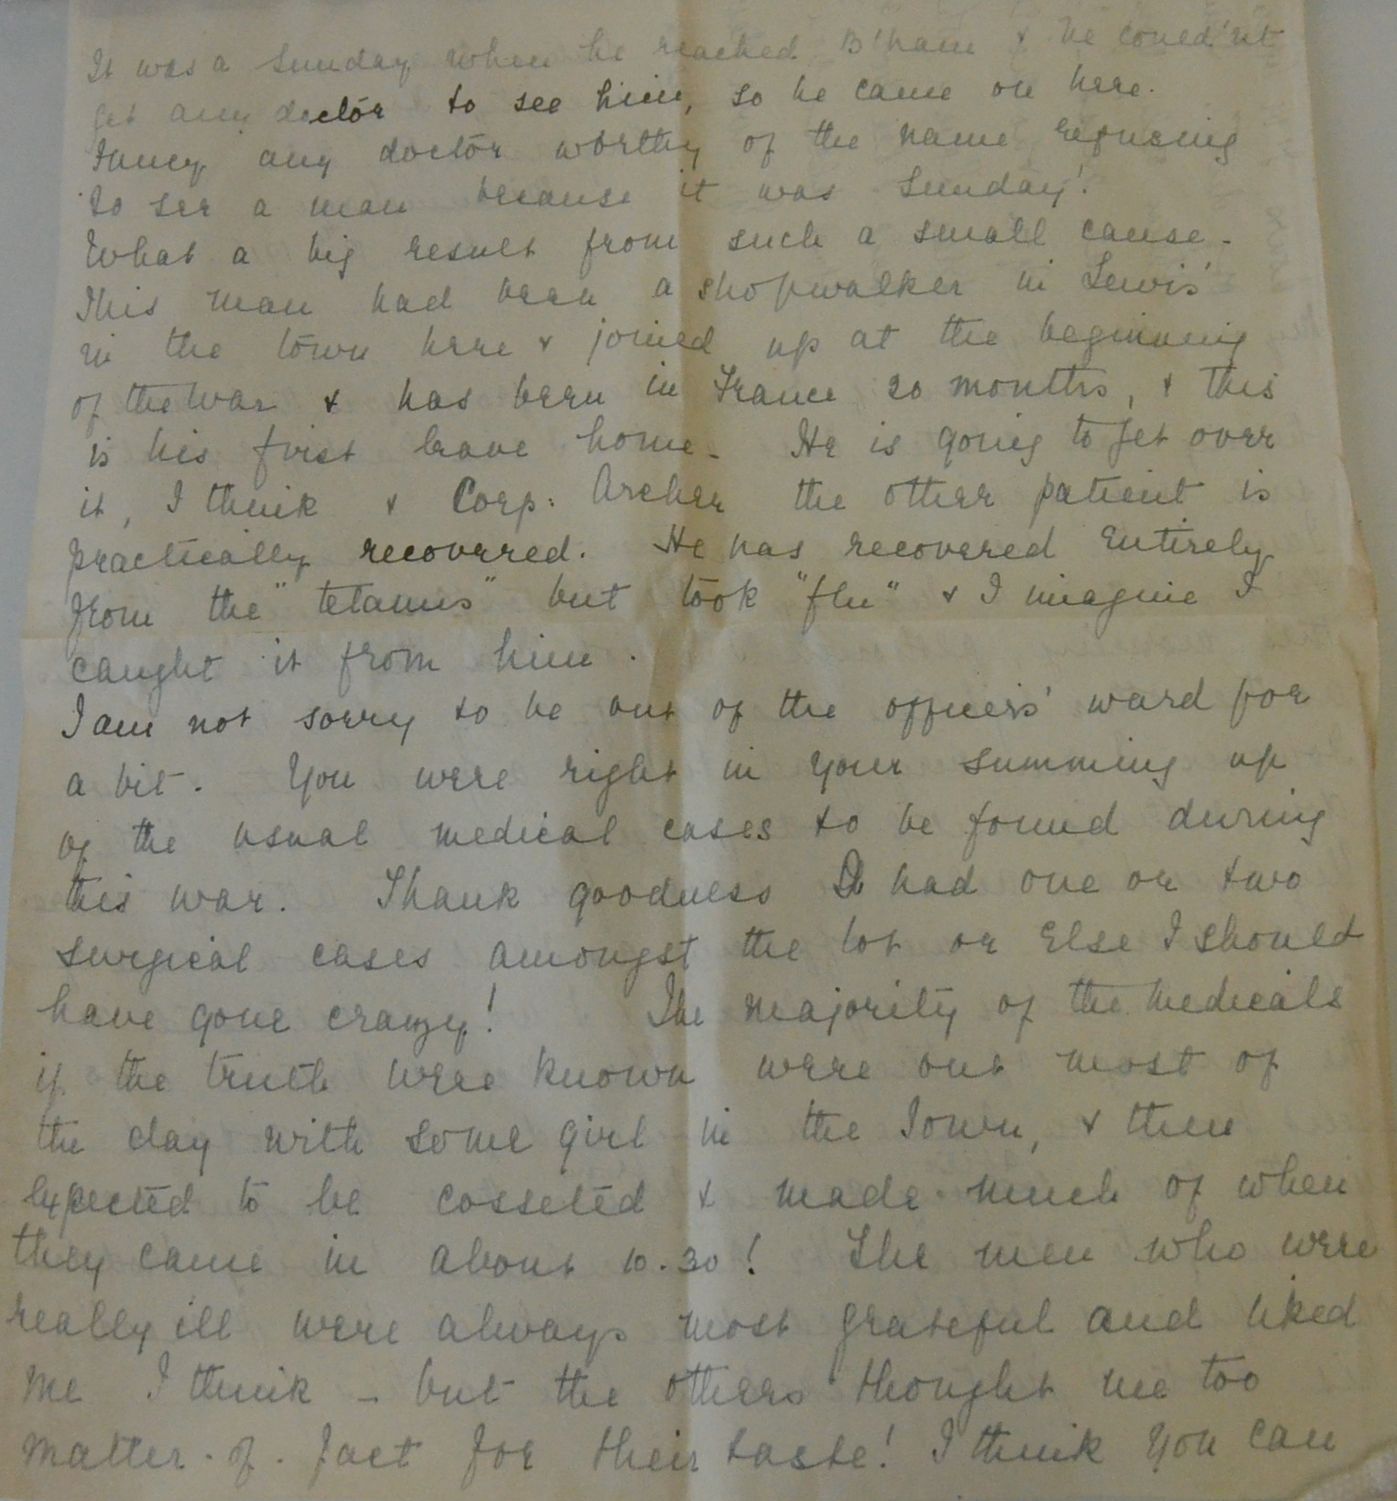 It was a Sunday when he reached B'ham & he could'nt
get any doctor to see him, so he came on here.
Fancy any doctor worthy of the name refusing
to see a man because it was Sunday!
What a big result from such a small cause.
This man had been a shopwalker in Lewis'
in the town here & joined up at the beginning
of the War & has been in France 20 months, & this
is his first leave home. He is going to get over
it, I think & Corp: Archer the other patient is
practically recovered. He has recovered entirely
from the "tetanus" but took "flu" & I imagine I
caught it from him.
I am not sorry to be out of the officers' ward for
a bit. You were right in your summing up
of the usual medical cases to be found during
this war. Thank goodness I had one or two
surgical cases amongst the lot or else I should
have gone crazy! The majority of the medicals
if the truth were known were out most of
the day with some girl in the Town, & then
expected to be cosseted & made much of when
they came in about 10.30! The men who were
really ill were always most grateful and liked
me I think – but the others thought me too
matter-of-fact for their taste! I think you can